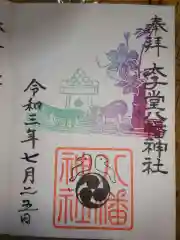 奉拝
太子堂八幡神社
令和三年七月二五日
八幡
神社